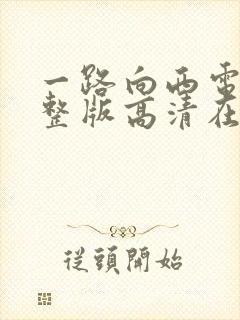 一路向西電
整版高清在
從頭開始